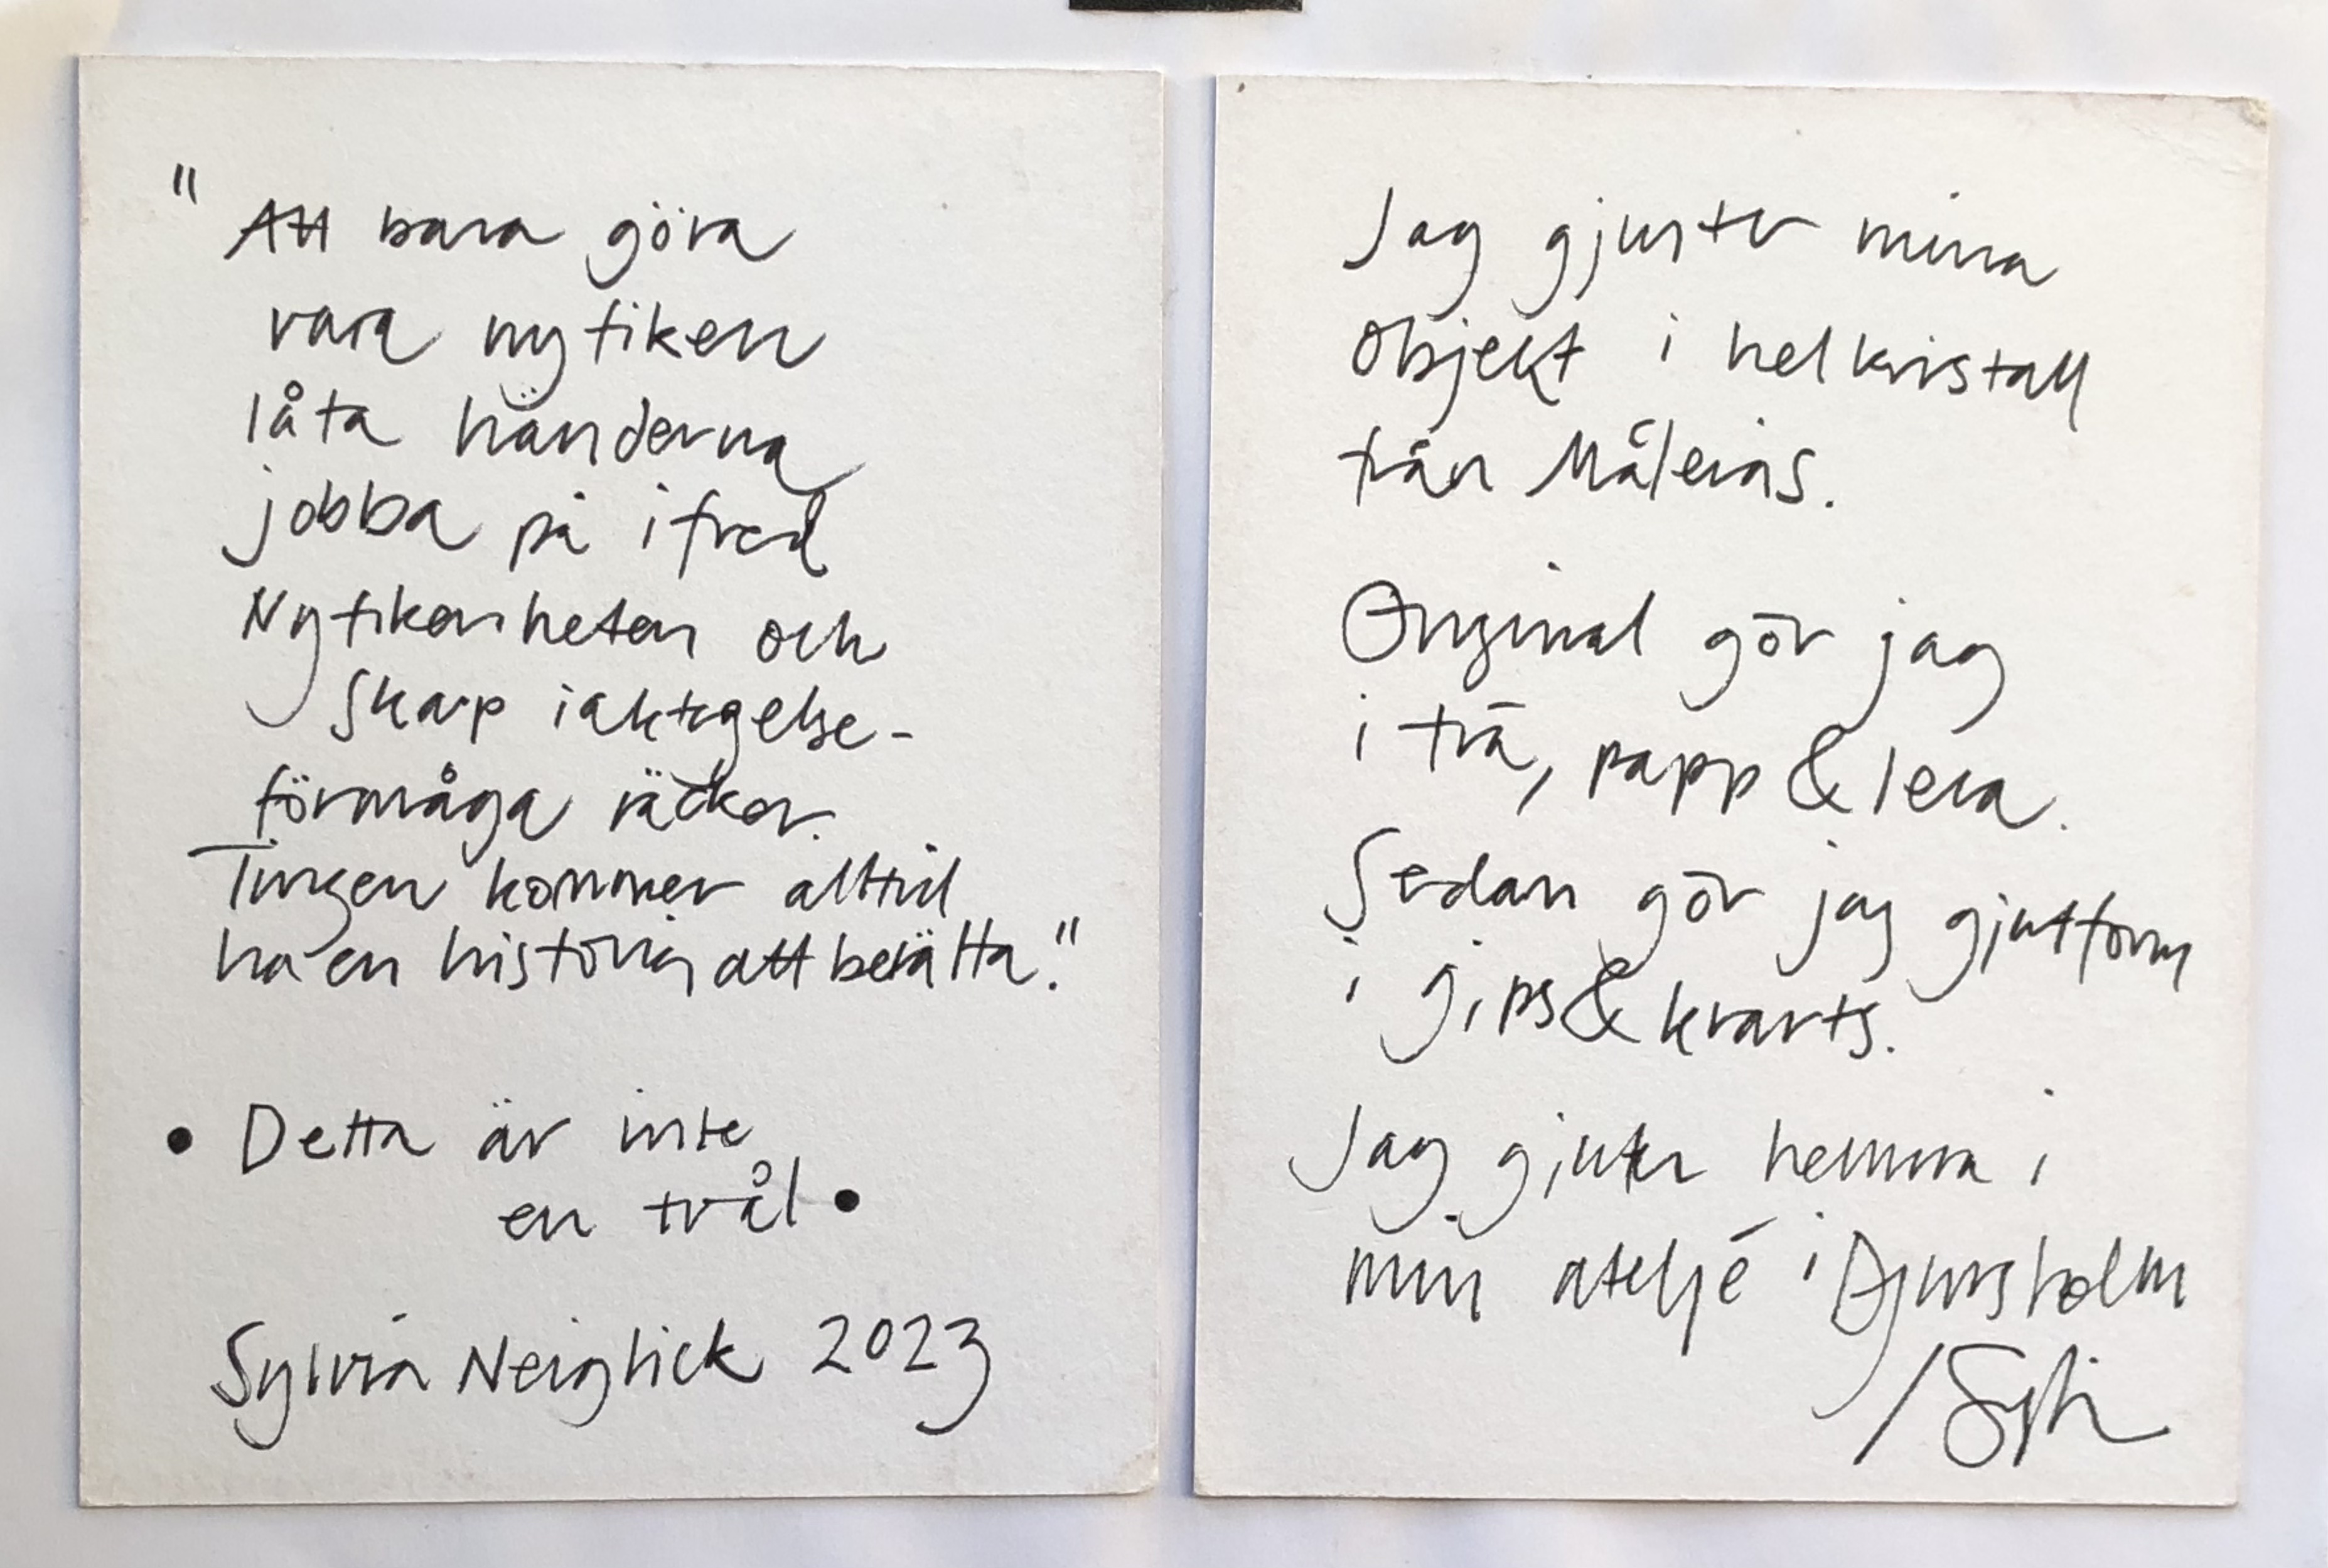 " Att bara göra
vara nyfiken
låta händerna
jobba på i fred
Nyfikenheten och
skarp iakttagelse-
förmåga räcker.
Tingen kommer alltid
ha en historia att berätta."
• Detta är inte
en tvål •
Sylvia Neiglick 2023
Jag gjuter mina
objekt i helkristall
från Målerås.
Original gör jag
i trä, papp & lera.
Sedan gör jag gjutform
i gips & kvarts.
Jag gjuter hemma i
min ateljé i Djursholm